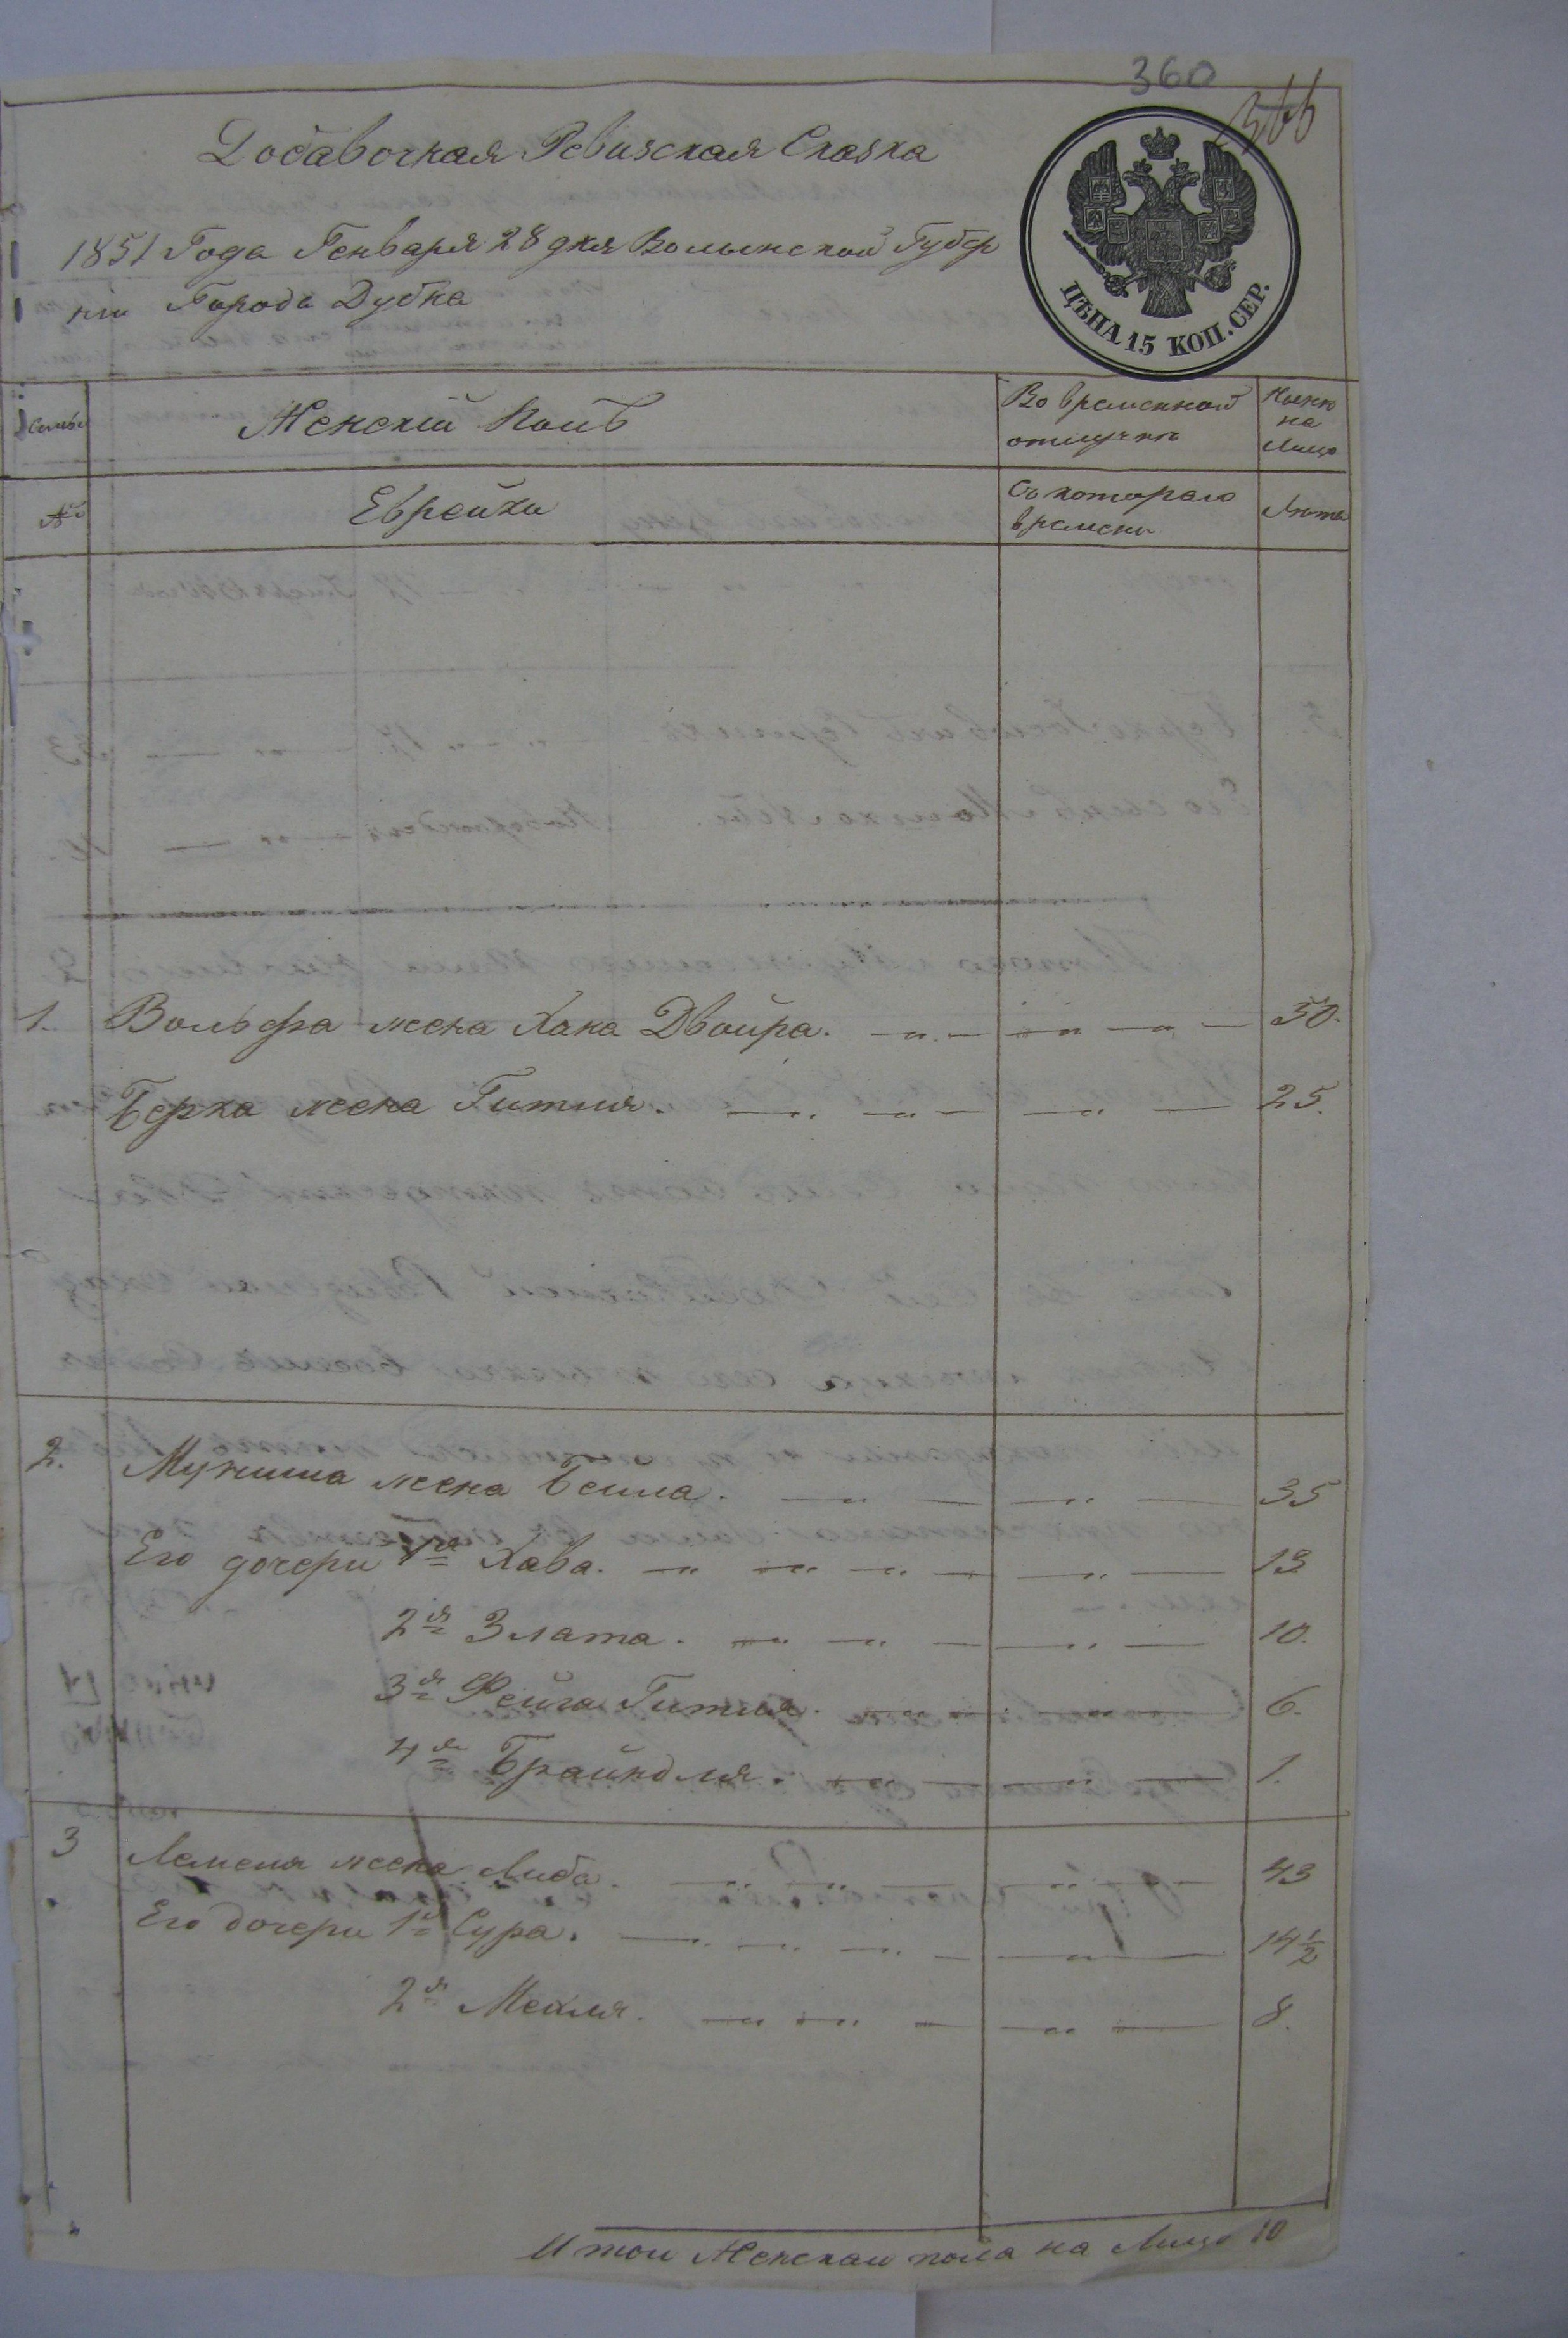 360
366
Добавочная Ревизская Сказка
1851 Года Генваря 28 дня Волынской Губер
нiи Города Дубна
ЦѢНА 15 КОП. СЕР.
Семьи Женскiй Полъ Во временной отлучкѣ Ныне на Лицо
№ Еврейки Съ котораго времени Лѣта
1. Вольфа жена Хана Двойра. 50.
Берка жена Гитля. 25.
2. Муниша жена Бейла. 35
Его дочери 1я Хава. 13
2я Злата. 10.
3я Фейга Гитля. 6.
4я Брайндля. 1.
3 Лемеля жена Либа. 43
Его дочери 1я Сура. 14½
2я Мехля. 8.
Итои Женскаи пола на Лицо 10